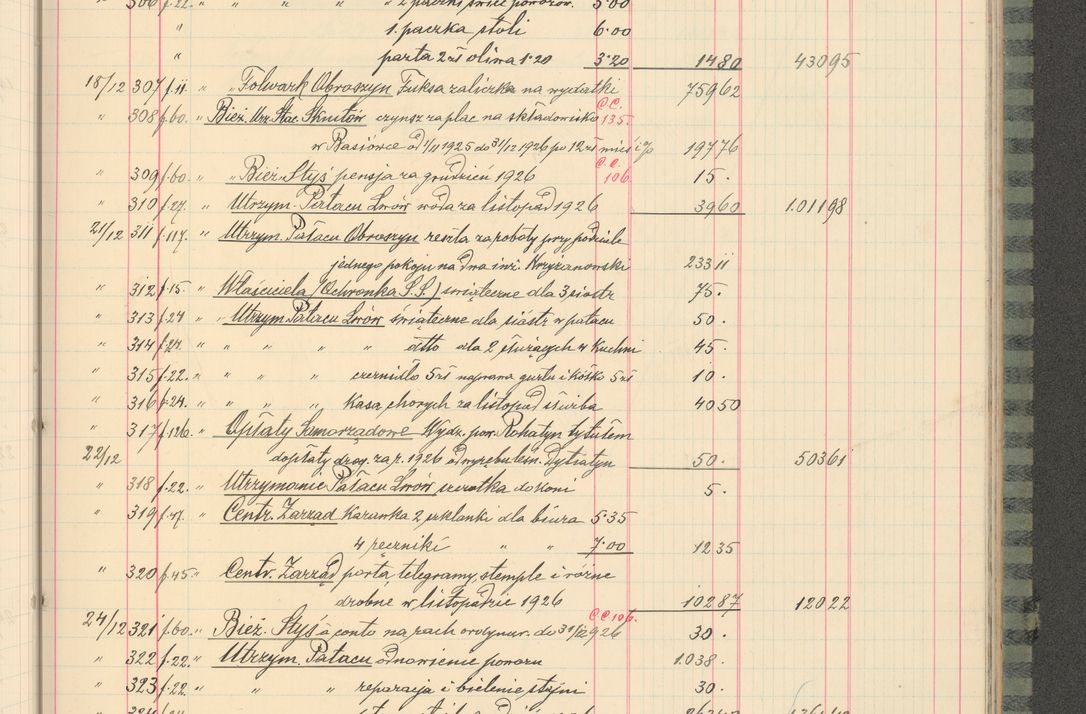 " 306 f.22. " " " " " 2 paczki świec powozow. 5·00
" 1. paczka stoli 6·00
" para 2 zł oliwa 1·20 3·20 1480 43095
18/12 307 f.11. " " Folwark Obroszyn Fuksa zaliczka na wydatki 75962
" 308 f.60. " Bież. Urz. Stac. Sknitów czynsz zapłac na składowisko C.C. 135.
w Basiówce od 1/11 1925 do 31/12 1926 po 12 zł mies i % 19776
" 309 f.60. " " Bież. Styś pensja za grudzień 1926 C.C. 106. 15.
" 310 f.27. " Utrzym. Pałacu Lwów woda za listopad 1926 3960 101198
21/12 311 f.117. " Utrzym. Pałacu Obroszyn reszta za roboty przy podziale
jednego pokoju na dwa inż. Krzyżanowski 23311
" 312 f.15. " Właściciela (Ochronka S.S.) świąteczne dla 3 siostr 75.
" 313 f.27 " Utrzym Pałacu Lwów świąteczne dla siostr w pałacu 50.
" 314 f.24. " " " " " dtto dla 2 służących w kuchni 45.
" 315 f.22. " " " " czernidło 5 zł naprawa gurtu i kółko 5 zł 10.
" 316 f.24. " " " " Kasa chorych za listopad służba 4050
" 317 f.126. " Opłaty Samorządowe Wydz. pow. Rohatyn tytułem
22/12 dopłaty drog. za r. 1926 od wyrębu lasu. Dytiatyn 50. 50361
" 318 f.22. " Utrzymanie Pałacu Lwów szczotka do koni 5.
" 319 f.47. " Centr. Zarząd Karawka 2 szklanki dla biura 5·35
4 ręczniki " " 7·00 1235
" 320 f.45. " Centr. Zarząd porta, telegramy, stemple i różne
drobne w listopadzie 1926 10287 12022
24/12 321 f.60. " Bież. Styś a conto na rach ordynar. do 31/12 926 C.C 106. 30.
" 322 f.22. " Utrzym. Pałacu odnowienie powozu 1038.
" 323 f.22. " " " reparacja i bielenie stajni 30.